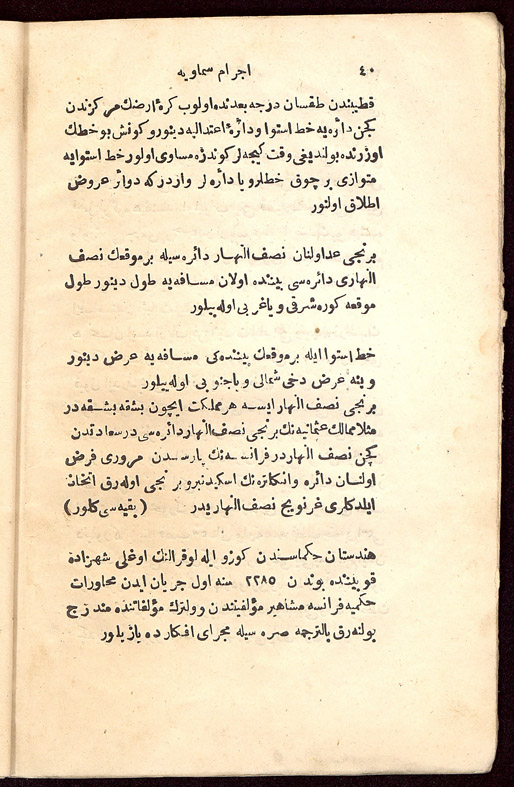 ٤٠
اجرام سماويه
قطبيندن طقسان درجه بعدنده اولوب كرهٔ ارضك مركزندن
كچن دائره يه خط استوا ودائرهٔ اعتداليه دينور و كونش بو خطك
اوزرنده بولنديغى وقت كيجه لر كوندزه مساوى اولور خط استوايه
متوازى بر چوق خطلر و يا دائره لر واردر كه دوائر عروض
اطلاق اولنور
برنجى عد اولنان نصف النهار دائره سيله بر موقعك نصف
النهارى دائره سى بيننده اولان مسافه يه طول دينور طول
موقعه كوره شرقى و ياغربى اوله بيلور
خط استوا ايله بر موقعك بيننده كى مسافه يه عرض دينور
و ينه عرض دخى شمالى و ياجنوبى اوله بيلور
برنجى نصف النهار ايسه هر مملكت ايچون بشقه بشقه در
مثلا ممالك عثمانيه نك برنجى نصف النهار دائره سى درسعادتدن
كچن نصف النهاردر فرانسه نك پارسدن مرورى فرض
اولنان دائره و انكلتره نك اسكيدنبرو برنجى اوله رق اتخاذ
ايلدكلرى غرنويج نصف النهاريدر (بقيه سى كلور)
هندستان حكماسندن كوزو ايله لوقرالنك اوغلى شهزاده
قو بيننده بوندن ٢٢٨٥ سنه اول جريان ايدن محاورات
حكميه فرانسه مشاهير مؤلفيندن وولترك مؤلفاتنده مندرج
بولنه رق بالترجمه صره سيله مجراى افكارده يازيلور